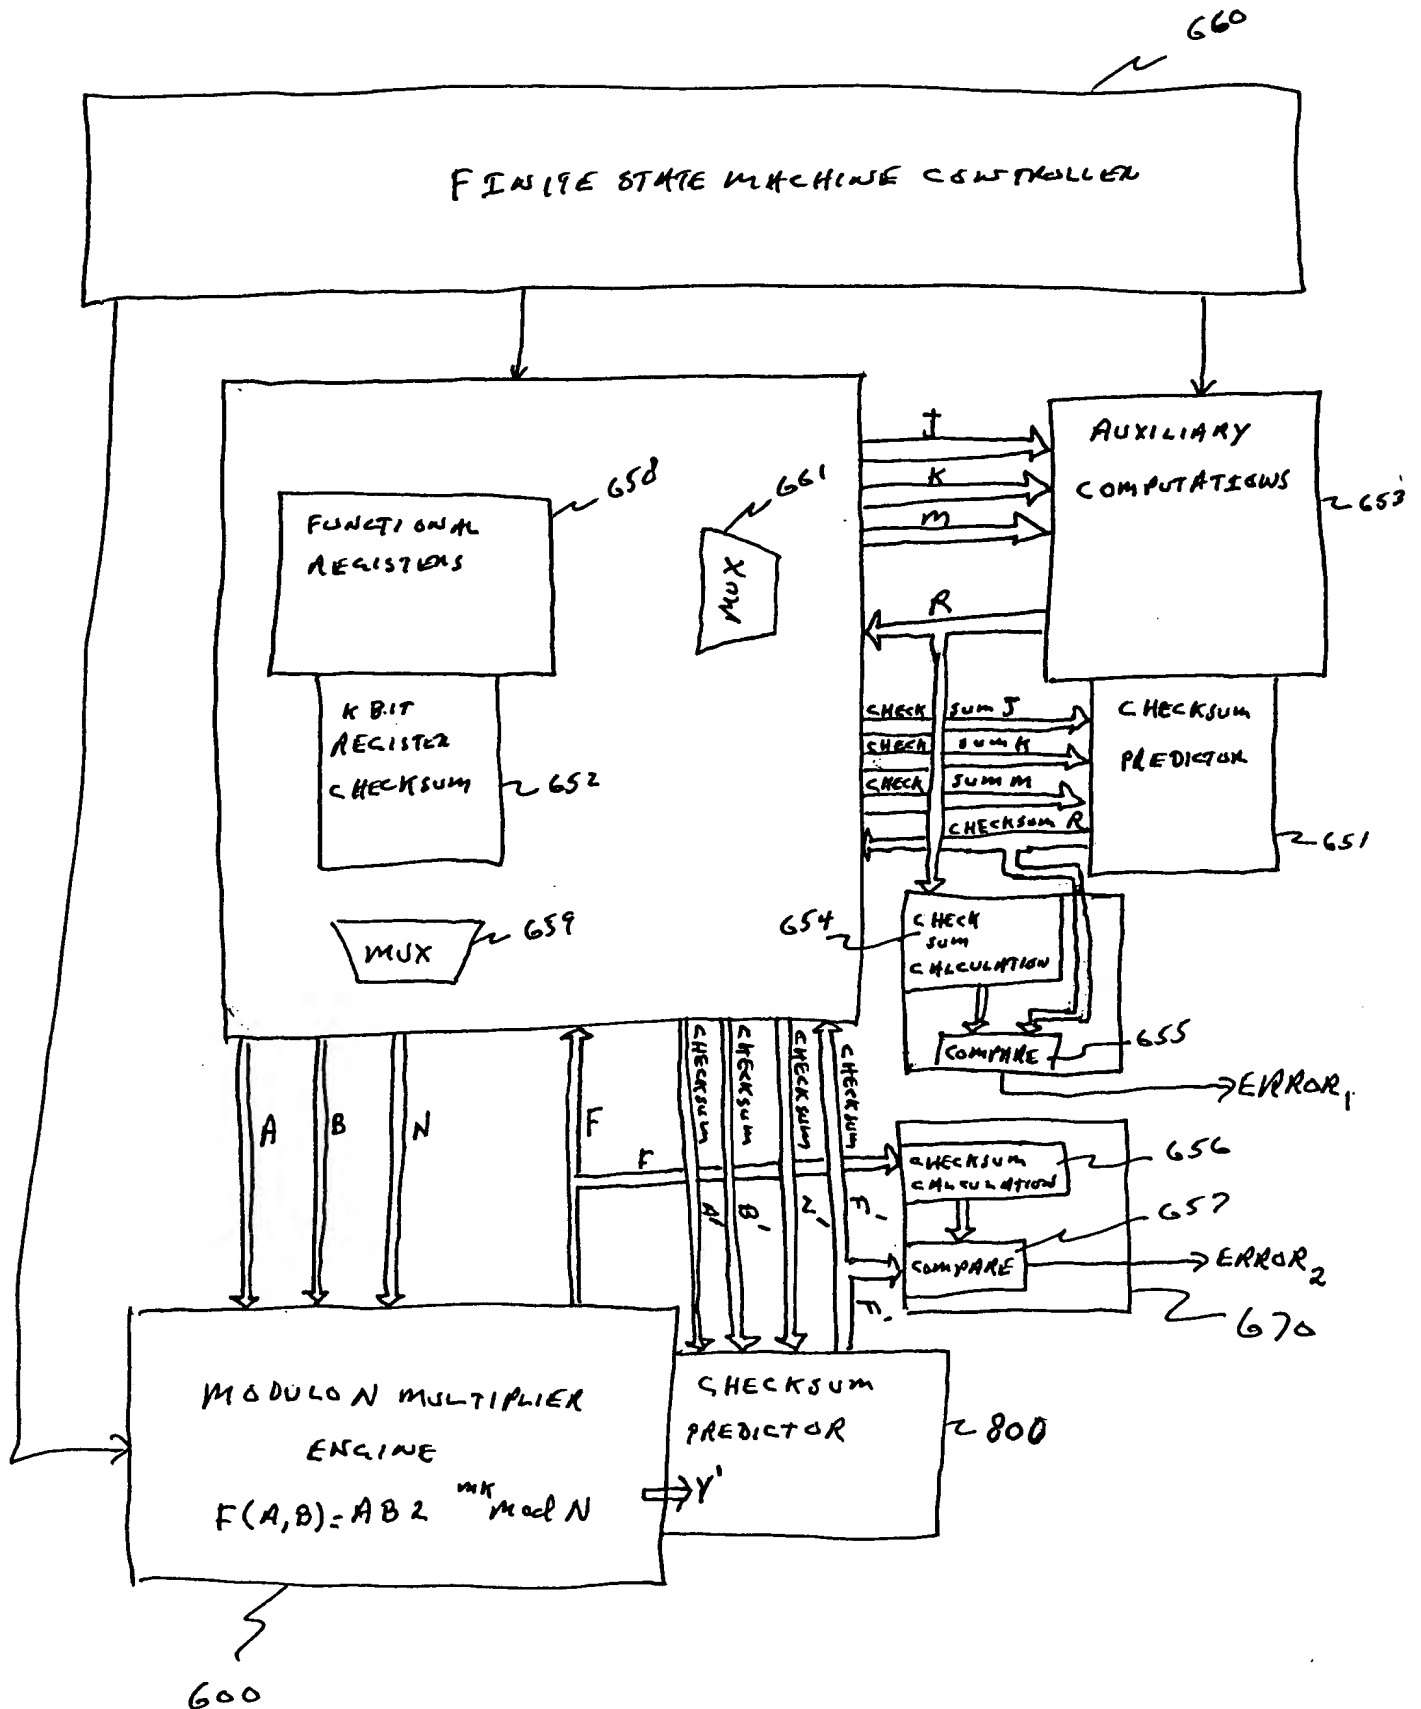 660
FINITE STATE MACHINE CONTROLLER
J
K
m
R
AUXILIARY
COMPUTATIONS
653
658
FUNCTIONAL
REGISTERS
661
MUX
K BIT
REGISTER
CHECKSUM
652
CHECK SUM J
CHECK SUM K
CHECK SUM M
CHECKSUM R
CHECKSUM
PREDICTOR
651
MUX
659
654
CHECK
SUM
CALCULATION
COMPARE
655
ERROR1
A
B
N
F
F
CHECKSUM A'
CHECKSUM B'
CHECKSUM
CHECKSUM F'
CHECKSUM
CALCULATION
656
COMPARE
657
ERROR2
F'
670
MODULO N MULTIPLIER
ENGINE
F(A,B)=AB2 mK mod N
Y'
CHECKSUM
PREDICTOR
800
600